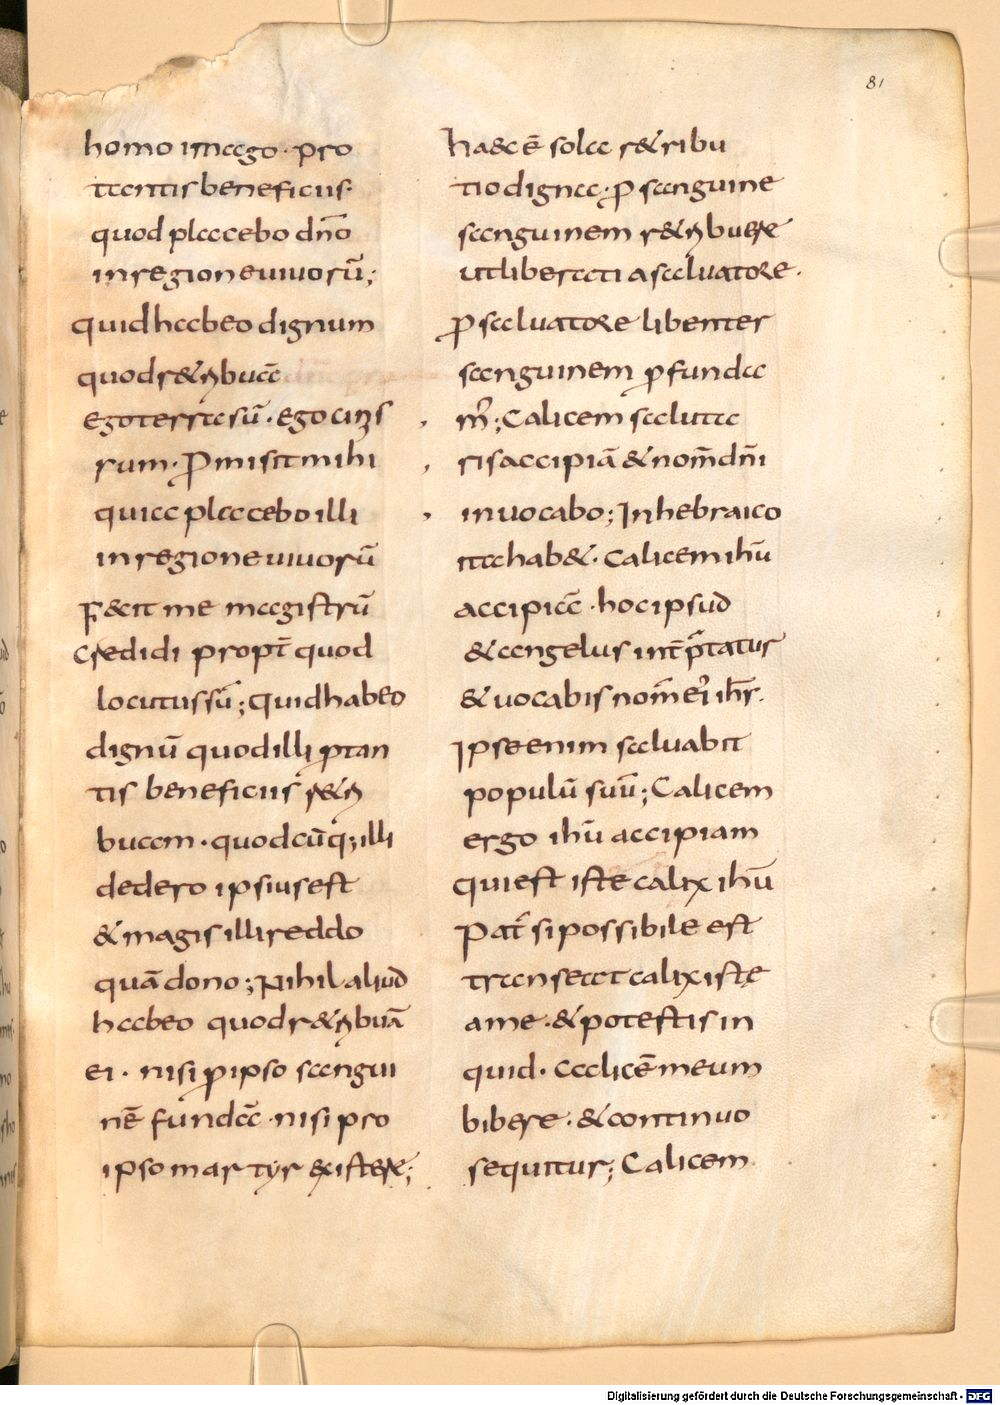 81
homo imago · pro
tantis beneficiis·
quod placebo dn̄o
in regione uiuorū;
quid habeo dignum
quod r&ribuā
ego terra sū · ego cine
rum · Promisit mihi
quia placebo illi
in regione uiuorū
F&cit me magistrū
credidi propt̄ quod
locutus sū; quid habeo
dignū quod illi ꝓ tan
tis beneficiis r&ri
buam · quodcūq; illi
dedero ipsius est
& magis illi reddo
quā dono; Nihil aliud
habeo quod r&ribuā
ei · nisi ꝓ ipso sangui
nē fundā · nisi pro
ipso martyr existere;
haec ē sola r&ribu
tio digna · ꝓ sanguine
sanguinem r&ribuere
ut liberati a saluatore ·
ꝓ saluatore libenter
sanguinem ꝓfunda
m̄; Calicem saluta
ris accipiā & nom̄ dn̄i
inuocabo; In hebraico
ita hab& · Calicem ihū
accipiā · hoc ipsud
& angelus int̄p̄tatur
& uocabis nom̄ ei' ihs̄ ·
Ipse enim saluabit
populū suū; Calicem
ergo ihū accipiam
qui est iste calix ihū
Pat̄ si possibile est
transeat calix iste
a me · & potestis in
quid · calicē meum
bibere · & continuo
sequitur; Calicem
Digitalisierung gefördert durch die Deutsche Forschungsgemeinschaft - DFG